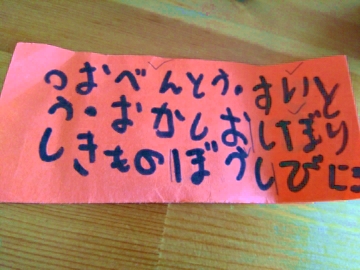 おべんとう・すいと
う・おかしおしぼり
しきものぼうしびに